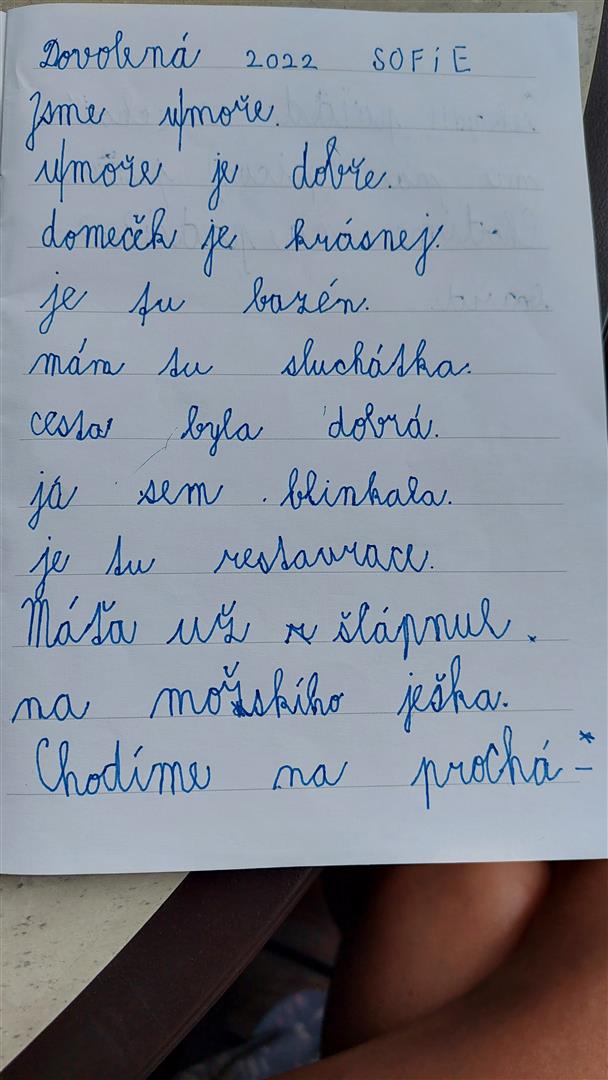 Dovolená 2022 SOFiE
Jsme u/moře.
u/moře je dobře.
domeček je krásnej.
je tu bazén.
mám tu sluchátka.
cesta byla dobrá.
já sem blinkala.
je tu restaurace.
Máťa už šlápnul.
na mořského ježka.
Chodíme na prochá-*